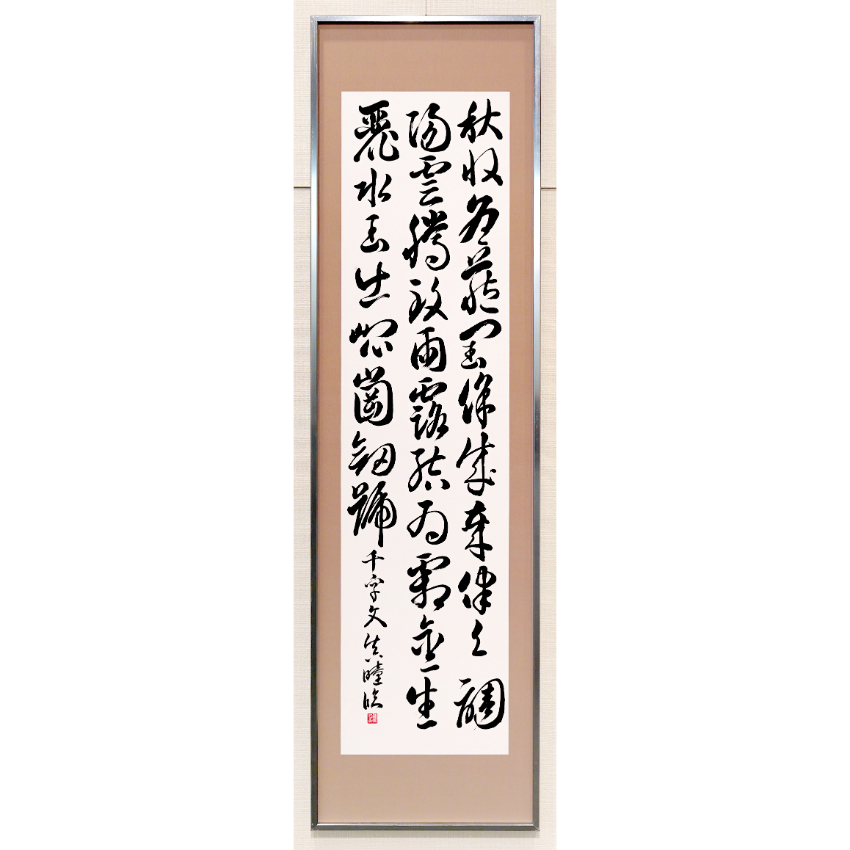 秋收冬藏閏餘成歲律呂調
陽雲騰致雨露結為霜金生
麗水玉出崑崗劍號 千字文 真瞳臨